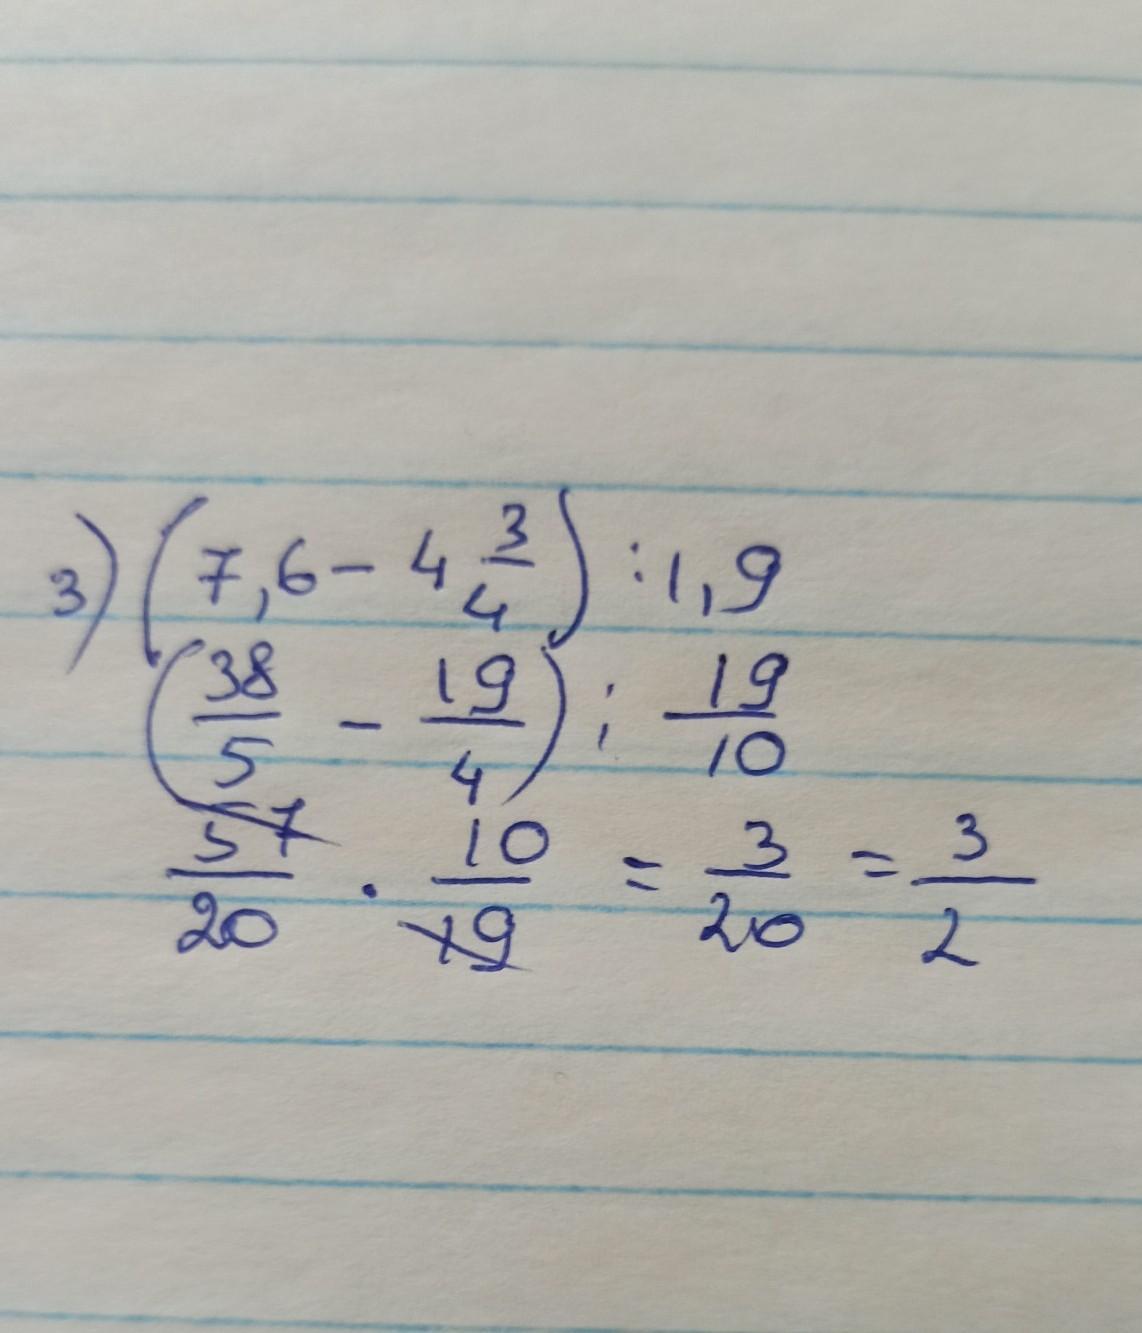 3) (7,6 - 4 3/4) : 1,9
(38/5 - 19/4) : 19/10
57/20 · 10/19 = 3/20 = 3/2